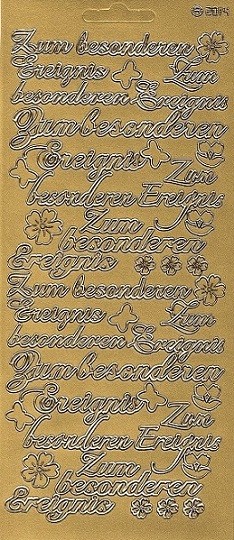 Zum besonderen
Ereignis Zum
besonderen Ereignis
Zum besonderen
Ereignis Zum
besonderen Ereignis
Zum
besonderen
Ereignis
Zum besonderen
Ereignis Zum
besonderen Ereignis
Zum besonderen
Ereignis Zum
besonderen Ereignis
Zum
besonderen
Ereignis